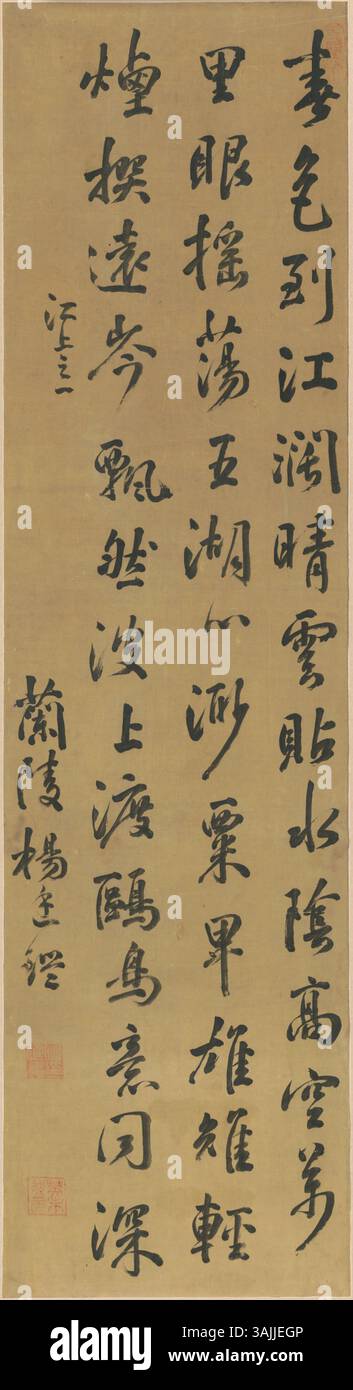 春色到江濶晴雲貼水陰高空萬
里眼搖蕩五湖心渺粟卑雄雉輕
煙撰遠岑飄然上渡鷗鳥意同深
江上之一
蘭陵楊廷鑑
alamy
Image ID: 3AJJEGP
www.alamy.com